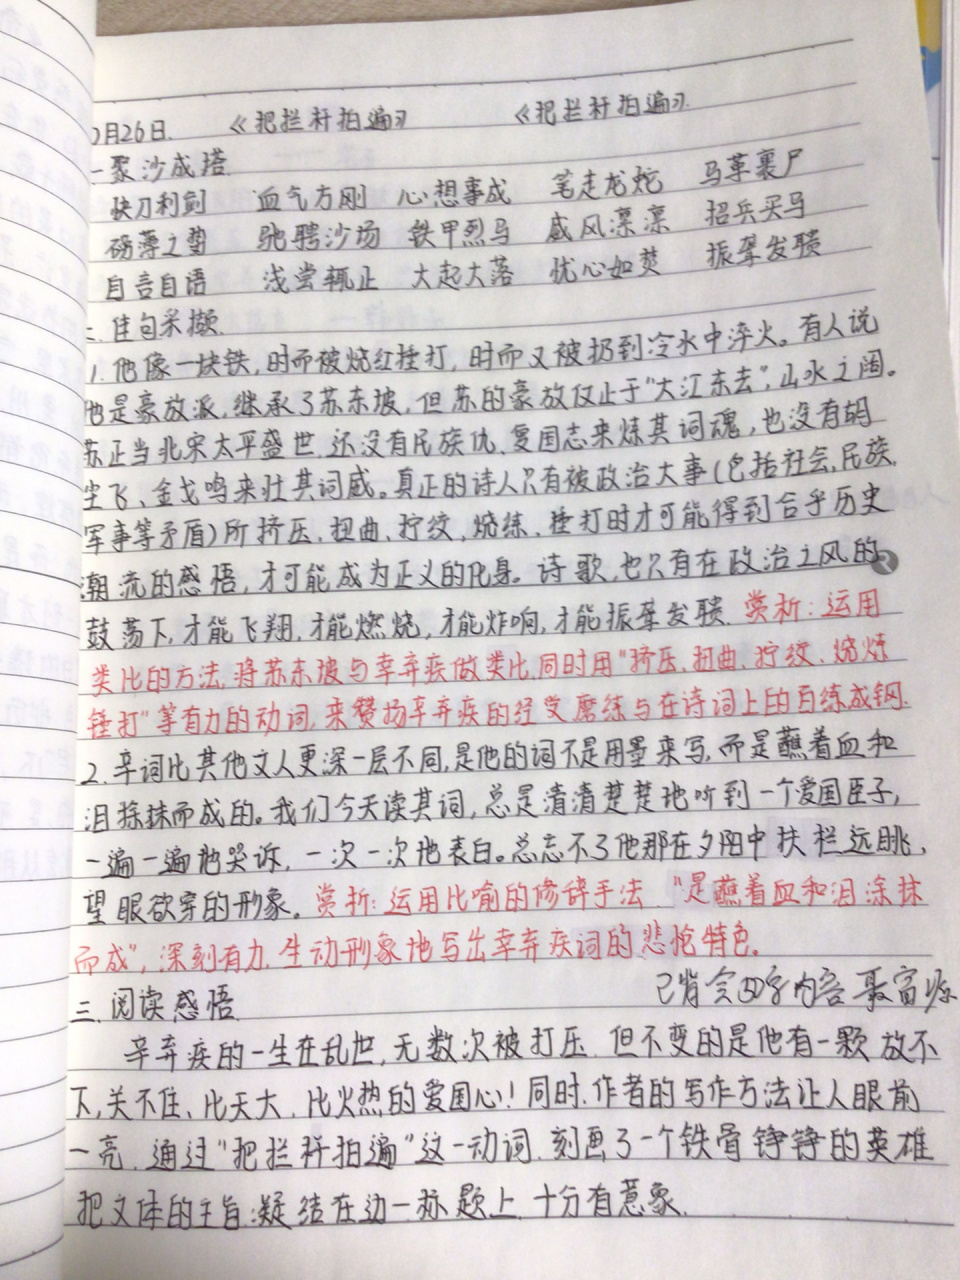 月26日. 《把拦杆拍遍》 《把拦杆拍遍》.
一 聚沙成塔.
快刀利剑 血气方刚 心想事成 笔走龙蛇 马革裹尸
磅薄之势 驰骋沙场 铁甲烈马 威风凛凛 招兵买马
自言自语 浅尝辄止 大起大落 忧心如焚 振聋发聩
二. 佳句采撷.
1. 他像一块铁,时而被烧红捶打,时而又被扔到冷水中淬火。有人说
他是豪放派,继承了苏东坡,但苏的豪放仅止于“大江东去”,山水之阔。
苏正当北宋太平盛世.还没有民族仇、爱国志来炼其词魂,也没有胡
尘飞、金戈鸣来壮其词威。真正的诗人只有被政治大事(包括社会、民族、
军事等矛盾)所挤压、扭曲、拧绞,烧练,捶打时才可能得到合乎历史
潮流的感悟,才可能成为正义的化身。诗歌,也只有在政治之风的
鼓荡下,才能飞翔,才能燃烧,才能炸响,才能振聋发聩.赏析:运用
类比的方法,将苏东坡与幸弃疾做类比,同时用“挤压、扭曲、拧绞、烧炼
锤打”等有力的动词,来赞扬辛弃疾的经受磨练与在诗词上的百练成钢.
2.辛词比其他文人更深一层不同,是他的词不是用墨来写,而是蘸着血和
泪搽抹而成的。我们今天读其词,总是清清楚楚地听到一个爱国臣子,
一遍一遍地哭诉,一次一次地表白。总忘不了他那在夕阳中扶栏远眺、
望眼欲穿的形象。赏析:运用比喻的修辞手法 “是蘸着血和泪涂抹
而成”,深刻有力.生动形象地写出幸弃疾词的悲怆特色。
已背会四字内容
三.阅读感悟.
辛弃疾的一生在乱世,无数次被打压.但不变的是他有一颗放不
下,关不住、比天大、比火热的爱国心!同时.作者的写作方法让人眼前
一亮.通过“把拦杆拍遍”这一动词.刻画了一个铁骨铮铮的英雄
把文体的主旨凝结在边一标题上.十分有意象.